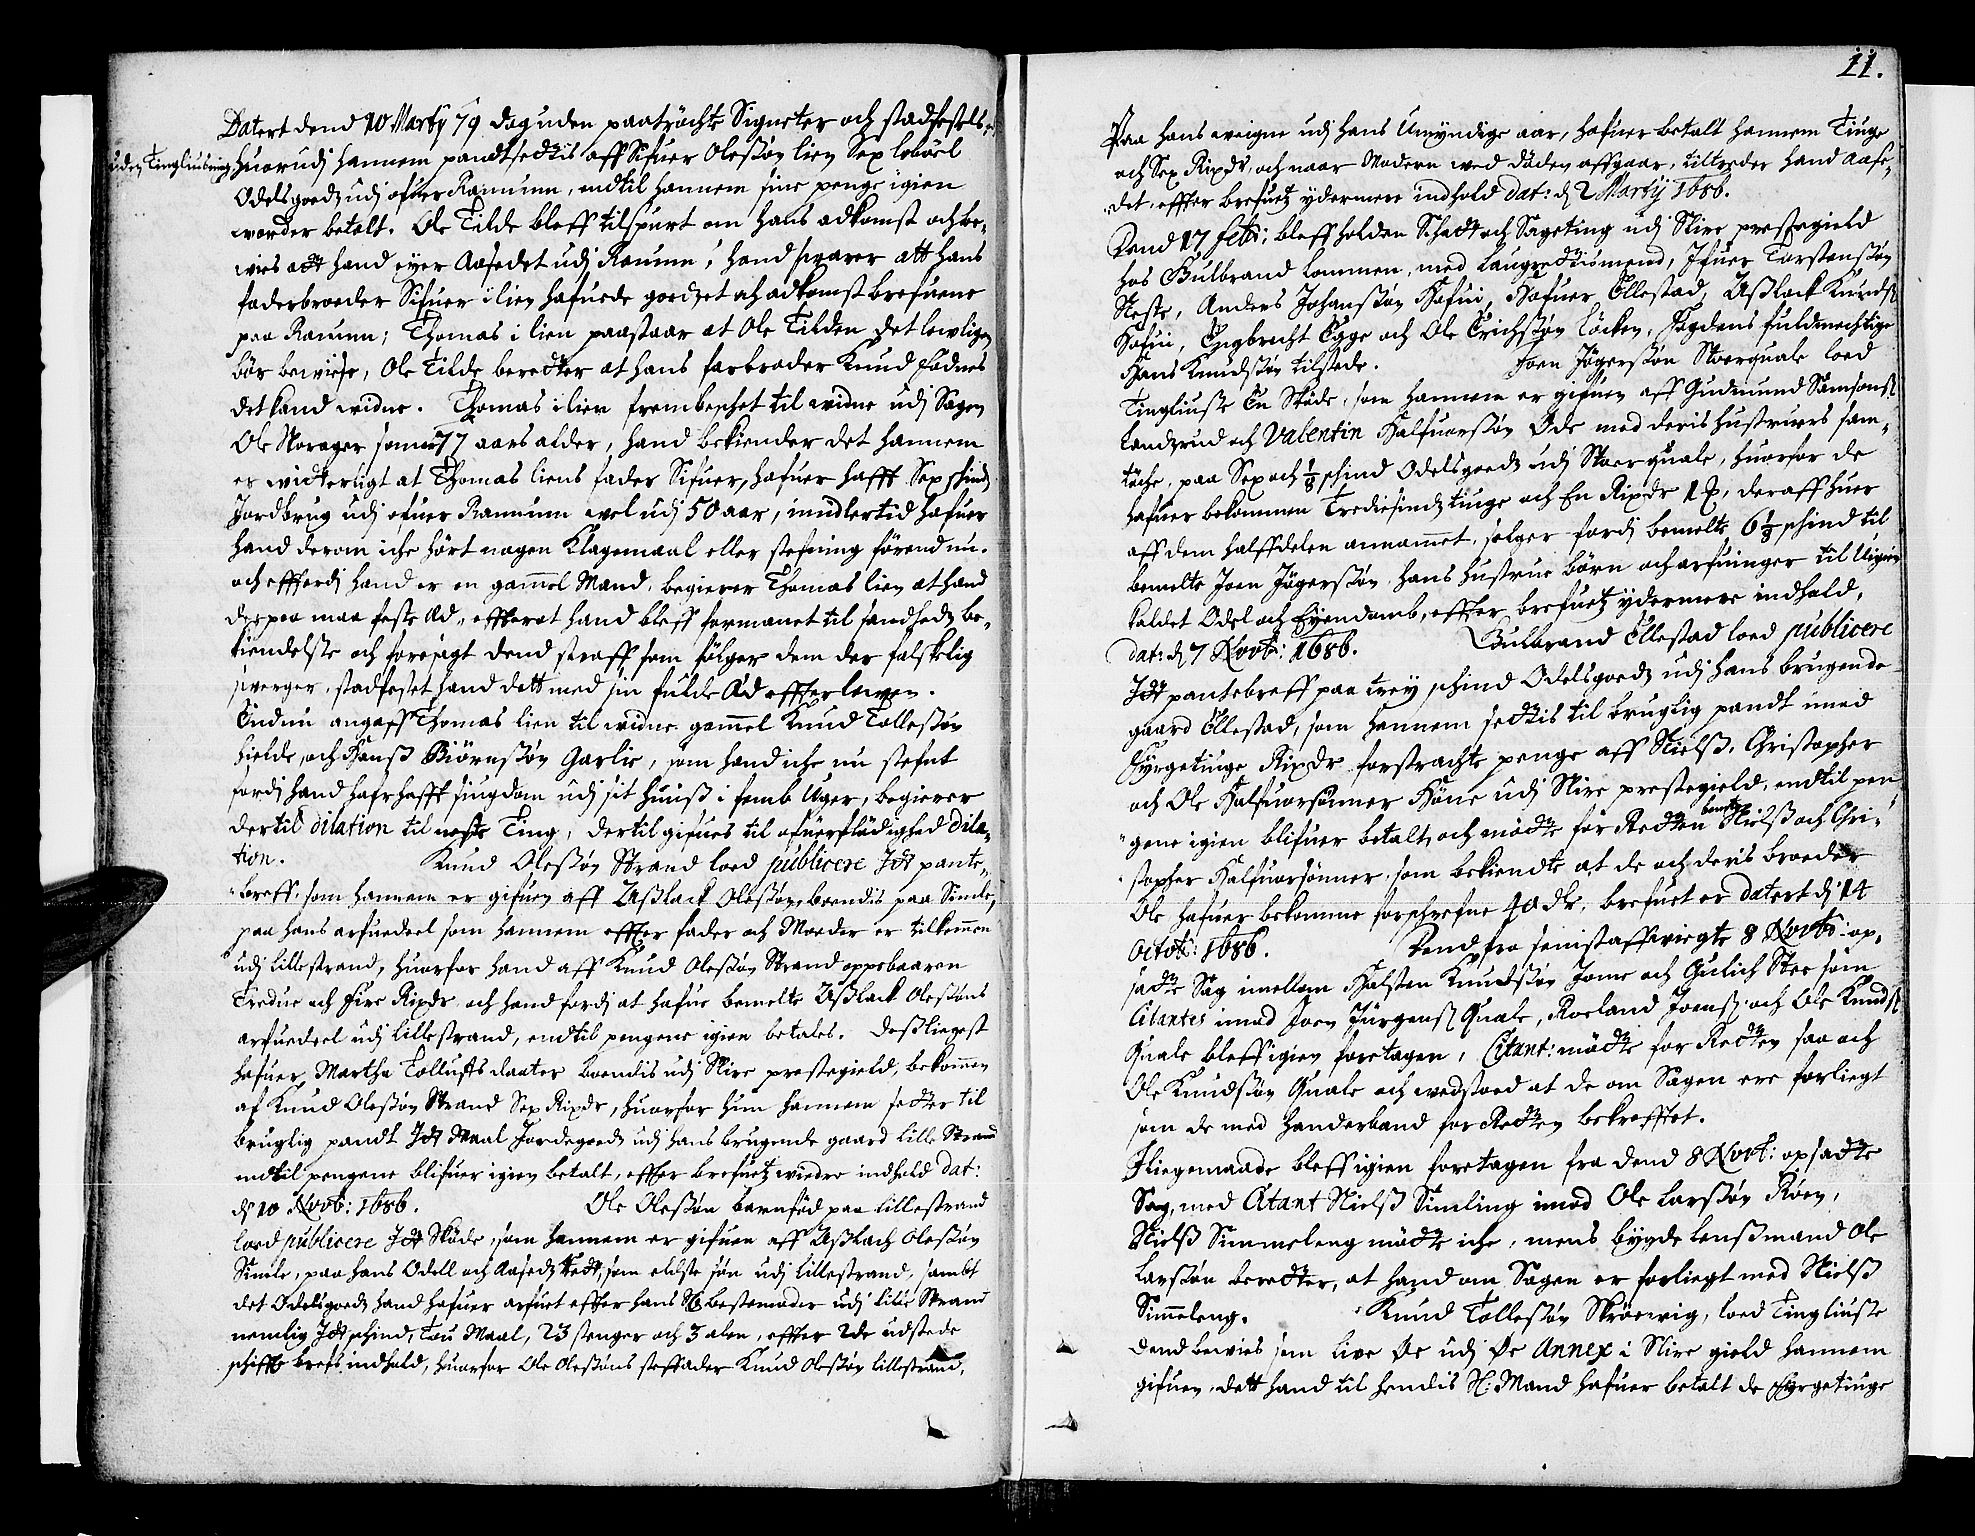 Datert dend 10 Marty 79 dog uden paatröchte Signeter och stadfestels¬
uden Tingliusning
huorudj hannem pandtsettis aff Sifuer Olessøn lien Sex leböel
Odelsgoedz udj øfuer Ranumn, indtil hannem sine penge igien
worder betalt. Ole Tilde bleff tilspurt om hans adkomst och be¬
wies att hand eyer Aasedet udj Ranum, hand swarer att hans
faderbroeder Sifuer i lien hafuede goedzet och adkomst brefuene
paa Ranum; Thomas i lien paastaar at Ole Tilden det lowligen
bör bewiese, Ole Tilde beretter at hans farbroder Knud Fødnes
det kand widne. Thomas i lien frembeschet til widne udj Sagen
Ole Norager som er 77 aars alder, hand bekiender det hannem
er witterligt at Thomas liens fader Sifuer, hafuer hafft Sex schinds
Jordbrug udj øfuer Ranumn wel udj 50 aar, imidlertid hafuer
hand derom iche hört nogen Klagemaal eller stefning förend nu.
och effterdj hand er en gammel Mand, begierer Thomas lien at hand
der paa maa feste Æd, effterat hand bleff formanet til sandhedz be¬
kiendelse och foresagt dend straff som fölger dem der falskelig
swerger, stadfestet hand dett med sin fulde Æd effter lowen.
Endnu angaff Thomas lien til widne gammel Knud Tollessøn
hielde, och Hanss Biörnssøn Garlie, som hand iche nu stefnt
fordj hand hafr hafft siugdom udj sit huuss i femb Uger, begierer
dertil dilation til neste Ting, dertil gifues til ofuerflödighed dila¬
tion. Knud Olessøn Strand loed publicere Jtt pante¬
breff, som hannem er gifuen aff Asslack Olessøn boendis paa Simle,
paa hans arfuedeel som hannem effter fader och Moeder er tilkommen
udj lillestrand, huorfor hand aff Knud Olessøn Strand oppebaaren
Tredue och Fire Rixdr och hand fordj at hafue bemelte Asslack Olessøns
arfuedeel udj lillestrand, indtil pengene igien betales. Dessliegest
hafuer Martha Tollufsdaater boendis udj Slire prestegield, bekommen
af Knud Olessøn Strand Sex Rixdr, huorfor hun hannem setter til
bruglig pandt Jtt Maal Jordegoedz udj hans brugende gaard lille Strand
indtil pengene blifuer igien betalt, effter brefuetz widre indhold dat:
d: 10 Novb: 1686. Ole Olessøn barnfød paa lillestrand
loed publicere Jtt Skiöde, som hannem er gifuen aff Asslach Olessøn
Simle, paa hans Odell och Aasedz Rett, som eldste søn udj lillestrand, sambt
det Odelsgoedz hand hafuer arfuet effter hans Sl: bestemoder udj lille Strand
nemlig Jtt schind, Tou Maal, 23 stenger och 3 alen, effter 2de udstede
schiffte brefs indhold, huorfor Ole Olessøns steffader Knud Olessøn lillestrand,
11.
Paa hans weigne udj hans Umyndige aar, hafuer betalt hannem Tiuge
och Sex Rixdr, och naar Modern wed döden affgaar, tiltreder hand aase¬
det, effter brefuetz ydermere indhold dat: d: 2 Marty 1686.
Dend 17 Feb: bleff holden Schatt och Sageting udj Slire prestegield
hos Gulbrand lommen, med laugrettismend, Jfuer Torstenssøn
Neste, Anders Johanssøn Hofui, Hafuer Ellestad, Asslack Knuds:
Hofui, Engbrecht Egge och Ole Erichssøn löcken, Fogdens fuldmechtige
Hans Knudssøn tilstede. Joen Jögerssøn Storquale loed
Tingliusse En Skiöde, som hannem er gifuen aff Gudmund Samsons:
landzrud och Valentin Halfuorssøn Øde med deris hustruers sam¬
töche, paa Sex och 1/8 schind Odelsgoedz udj Storquale, huorfor de
hafuer bekommen Trediesindz tiuge och En Rixdr 1 ₰, deraff huer
aff dem halffdelen annammet, selger fordj bemelte 6 1/8 schind til
bemelte Joen Jögerssøn, hans hustrue börn och arfuinger til Uigien
kaldet Odel och Eyendomb, effter brefuetz ydermere indhold,
dat: d: 7 Novb: 1686. Gulbrand Ellestad loed publicere
Jtt pantebreff paa trey schind Odelsgoedz udj hans brugende
gaard Ellestad, som hannem settis til bruglig pandt imod
Fyrgetiuge Rixdr forstrachte penge aff Nielss, Christopher
och Ole Halfuorsönner Höne udj Slire prestegield, indtil pen¬
gene igien blifuer betalt, och mödte for Retten bemte Nielss och Chri¬
stopher Halfuorsönner, som bekiendte at de och deris broeder
Ole hafuer bekomme forschrefne 40 dr, brefuet er datert d: 14
Octob: 1686. Dend fra senist affwiegte 8 Novb: op¬
satte Sag imellem Halsten Knudssøn Jome och Gulich Stee som
Citantes imod Joen Jürgens: Quale, Roeland Joens: och Ole Knuds:
Quale bleff igien foretagen, Citant: mödte for Retten saa och
Ole Knudssøn Quale och wedstoed at de om Sagen ere forliegt
som de med Handerband for Retten bekrefftet.
Jliegemaade bleff igien foretagen fra dend 8 Novb: opsatte
Sag, med Citant Nielss Simling imod Ole Larssøn Röen,
Nielss Simmeleng mödte iche, mens bygde lenssmand Ole
Larssøn beretter, at hand om Sagen er forliegt med Nielss
Simmeleng. Knud Tollessøn Skröewig, loed Tingliuse
dend bewies som live Øe udj Øe Annex i Slire gield hannem
gifuen, dett hand til hendis Sl: Mand hafuer betalt de Fyrgetiuge